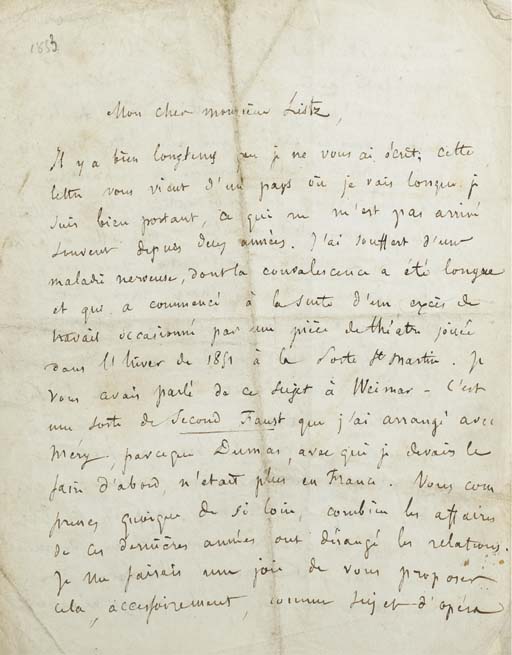 1853
Mon cher monsieur Listz,
Il y a bien longtems que je ne vous ai écrit; cette
lettre vous vient d'un pays où je vais lorsque je
suis bien portant, ce qui ne m'est pas arrivé
souvent depuis deux années. J'ai souffert d'une
maladie nerveuse, dont la convalescence a été longue
et qui a commencé à la suite d'un excès de
travail occasionné par une pièce de théatre jouée
dans l'hiver de 1851 à la Porte St Martin. Je
vous avais parlé de ce sujet à Weimar - C'est
une sorte de Second Faust que j'ai arrangé avec
Méry, parceque Dumas, avec qui je devais le
faire d'abord, n'était plus en France. Vous com
prenez quoique de si loin, combien les affaires
de ces dernières années ont dérangé les relations.
Je me faisais une joie de vous proposer
cela, accessoirement, comme sujet d'opéra